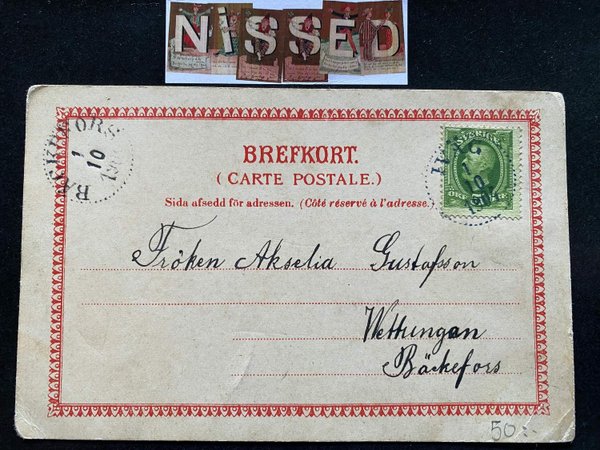 NiSSED
BREFKORT.
( CARTE POSTALE.)
Sida afsedd för adressen. (Côté réservé à l'adresse.)
BÄCKEFORS
1
10
SVERIGE
5
1
10
Fröken Akselia Gustafsson
Wettungan
Bäckefors
50:-